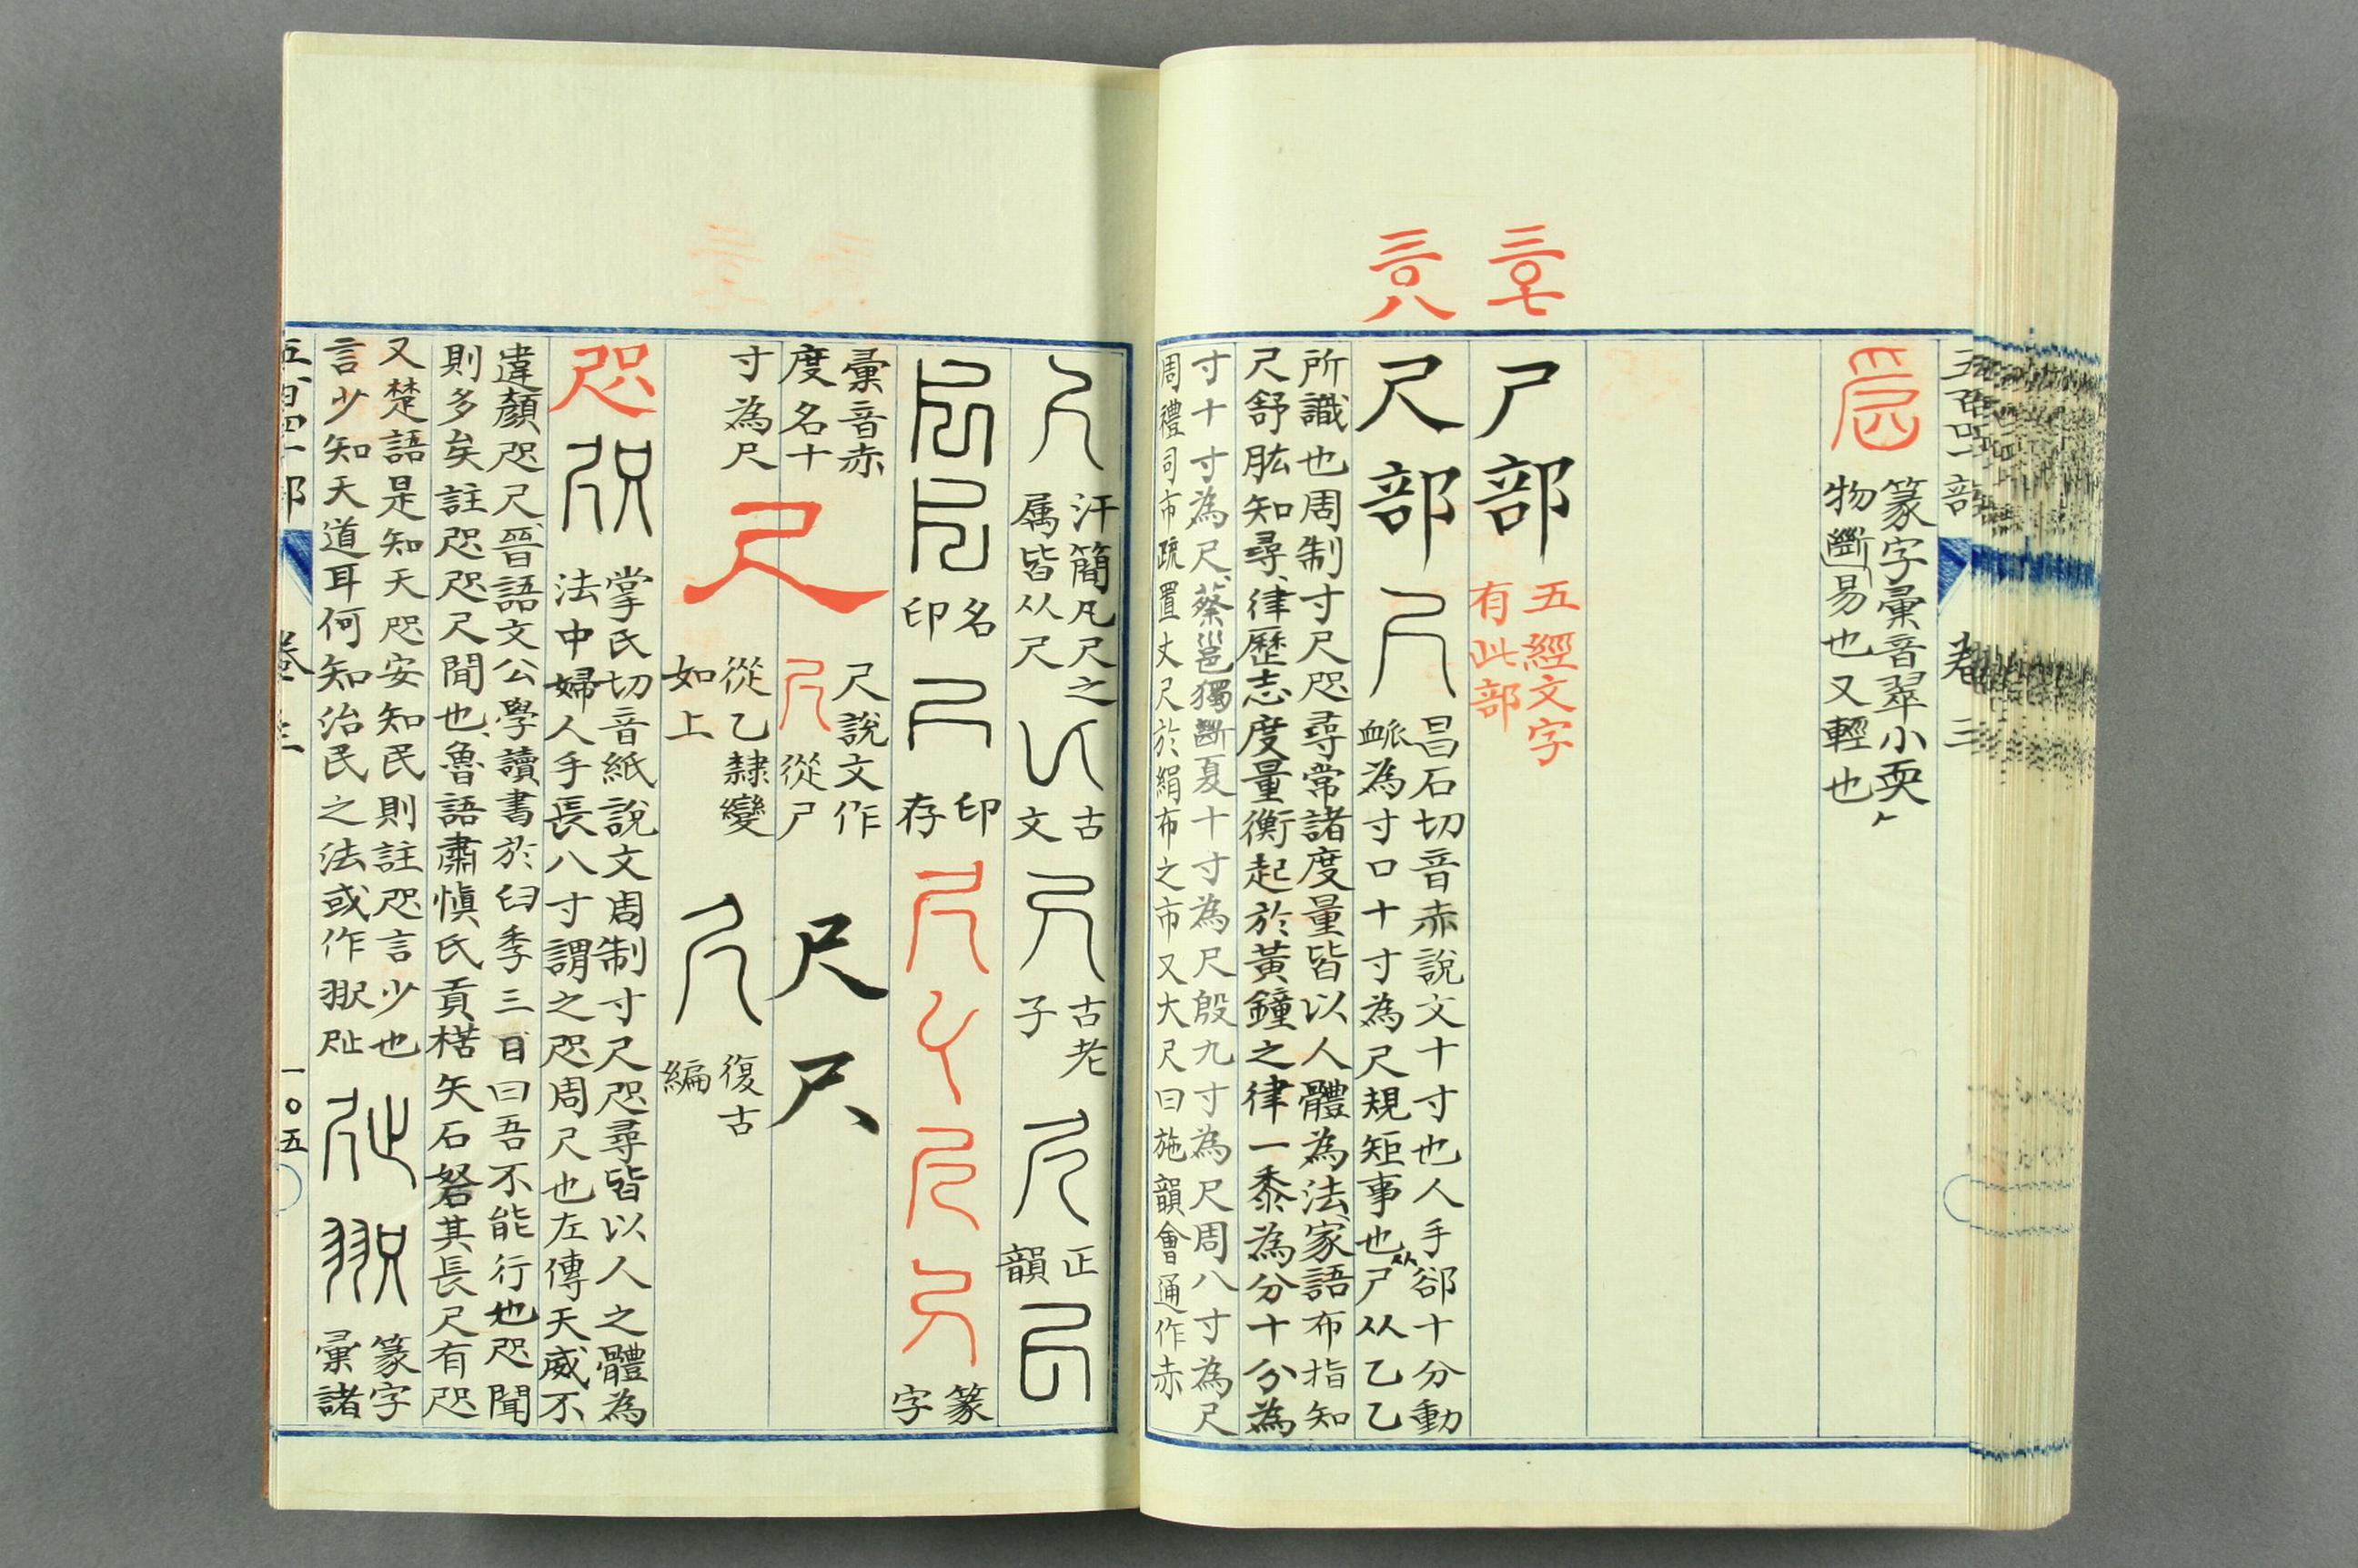 三〇七
三〇八
五百四十部 卷三
篆字彙音翠小耎
物斷易也又輕也
尸部
五經文字
有此部
尺部
昌石切音赤說文十寸也人手郤十分動
脈為寸口十寸為尺規矩事也从尸从乙乙
所識也周制寸尺咫尋常諸度量皆以人體為法家語布指知
尺舒肱知尋律歷志度量衡起於黃鐘之律一黍為分十分為
寸十寸為尺蔡邕獨斷夏十寸為尺殷九寸為尺周八寸為尺
周禮司市疏置丈尺於絹布之市又大尺曰施韻會通作赤
汗簡凡尺之
属皆从尺
古
文
古老
子
正
韻
名
印
印
存
篆
字
彙音赤
度名十
寸為尺
尺
尺說文作
從尸
從乙隸變
如上
尺
尺
復古
編
咫
掌氏切音紙說文周制寸尺咫尋皆以人之體為
法中婦人手長八寸謂之咫周尺也左傳天威不
違顏咫尺晉語文公學讀書於臼季三日曰吾不能行也咫聞
則多矣註咫咫尺間也魯語肅慎氏貢楛矢石砮其長尺有咫
又楚語是知天咫安知民則註咫言少也
言少知天道耳何知治民之法或作
篆字
彙諸
五百四十部 卷三 一〇五